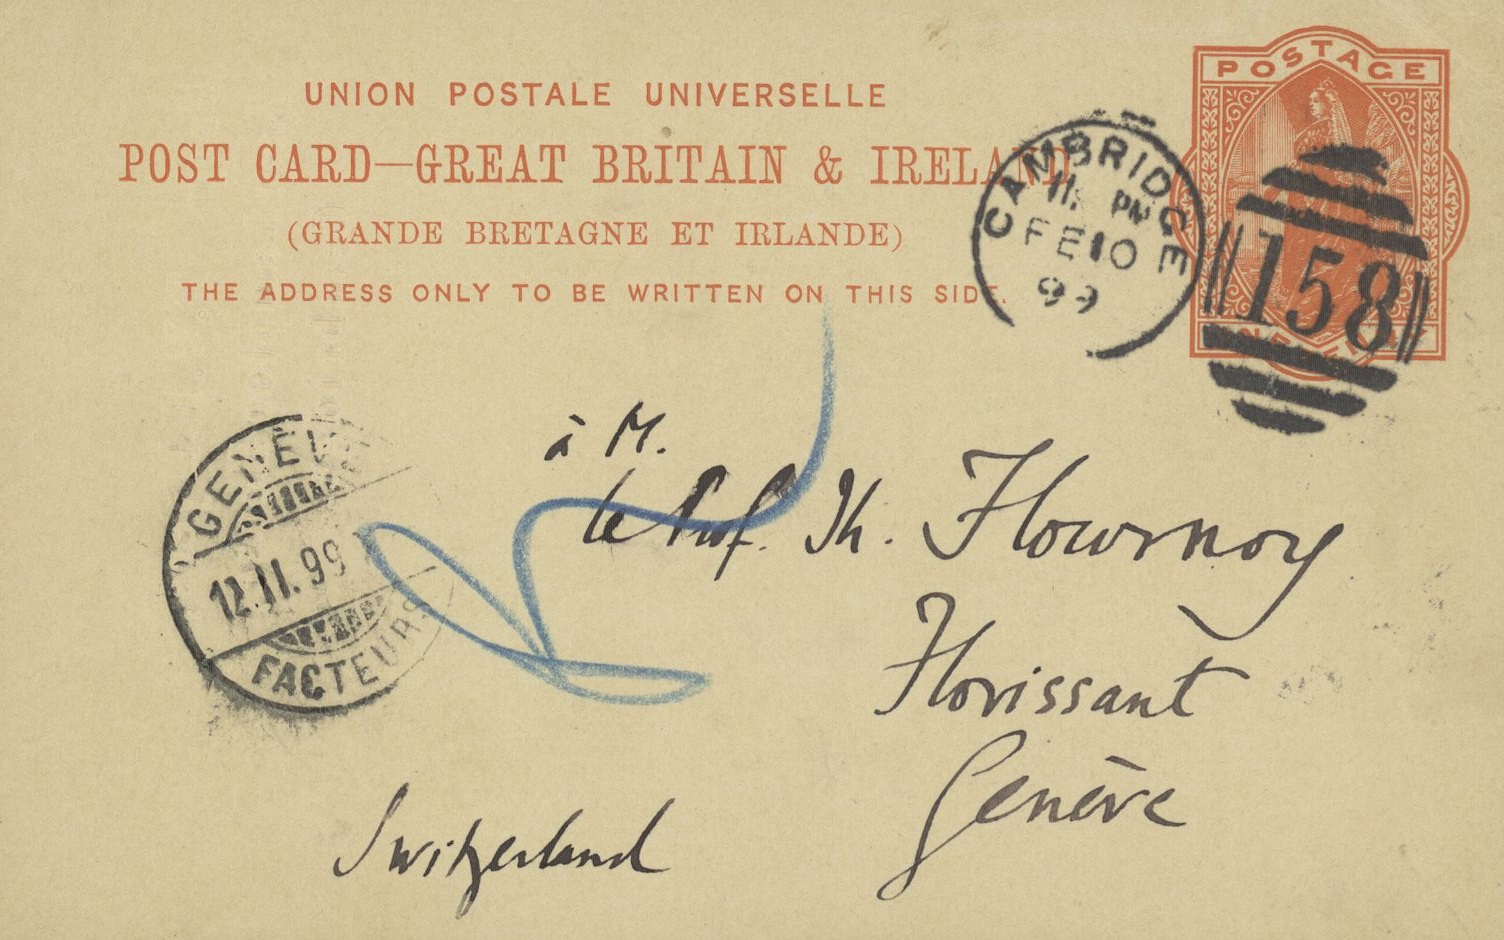 POSTAGE
UNION POSTALE UNIVERSELLE
POST CARD—GREAT BRITAIN & IRELAND
(GRANDE BRETAGNE ET IRLANDE)
THE ADDRESS ONLY TO BE WRITTEN ON THIS SIDE.
CAMBRIDGE
11 PM
FE 10
99
158
ONE PENNY
GENÈVE
12.II.99
FACTEURS
à M.
le Prof. Th. Flournoy
Florissant
Genève
Switzerland